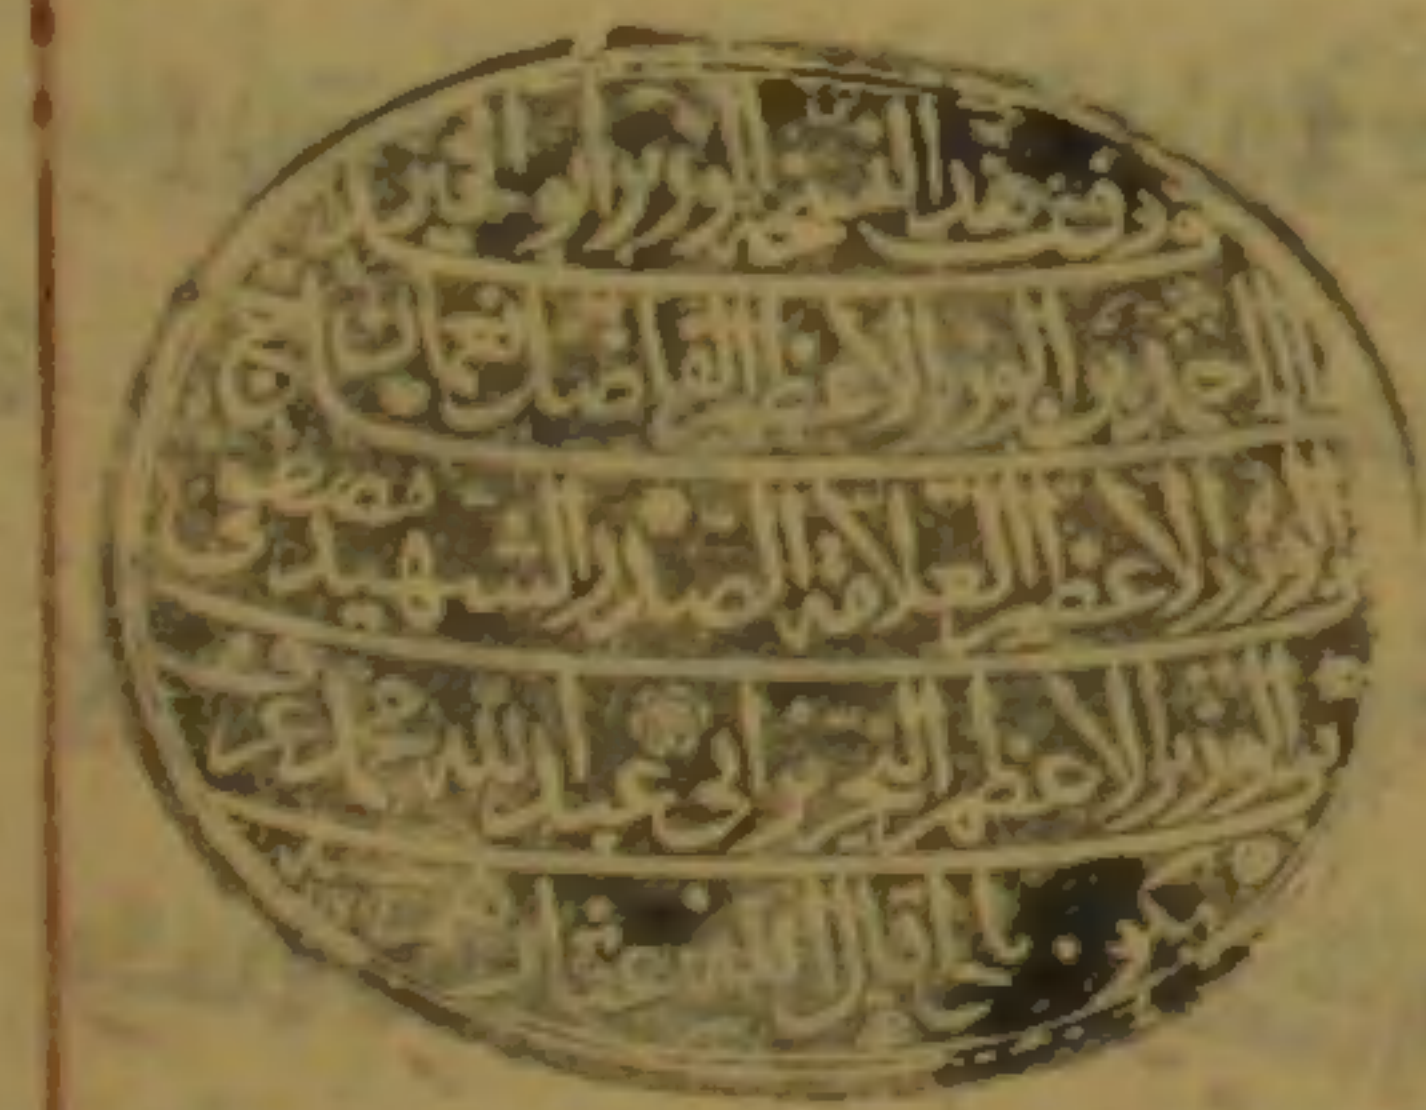 وقف هذه النسخة الوزير ابو الخير الحاج
احمد بن الوزير الاعظم الفاضل نعمان بن
الوزير الاعظم العلامة الصدر الشهيد مصطفى
بن الوزير الاعظم النحرير ابي عبد الله محمد عرف
بكوبريلي اقال الله عثارهم